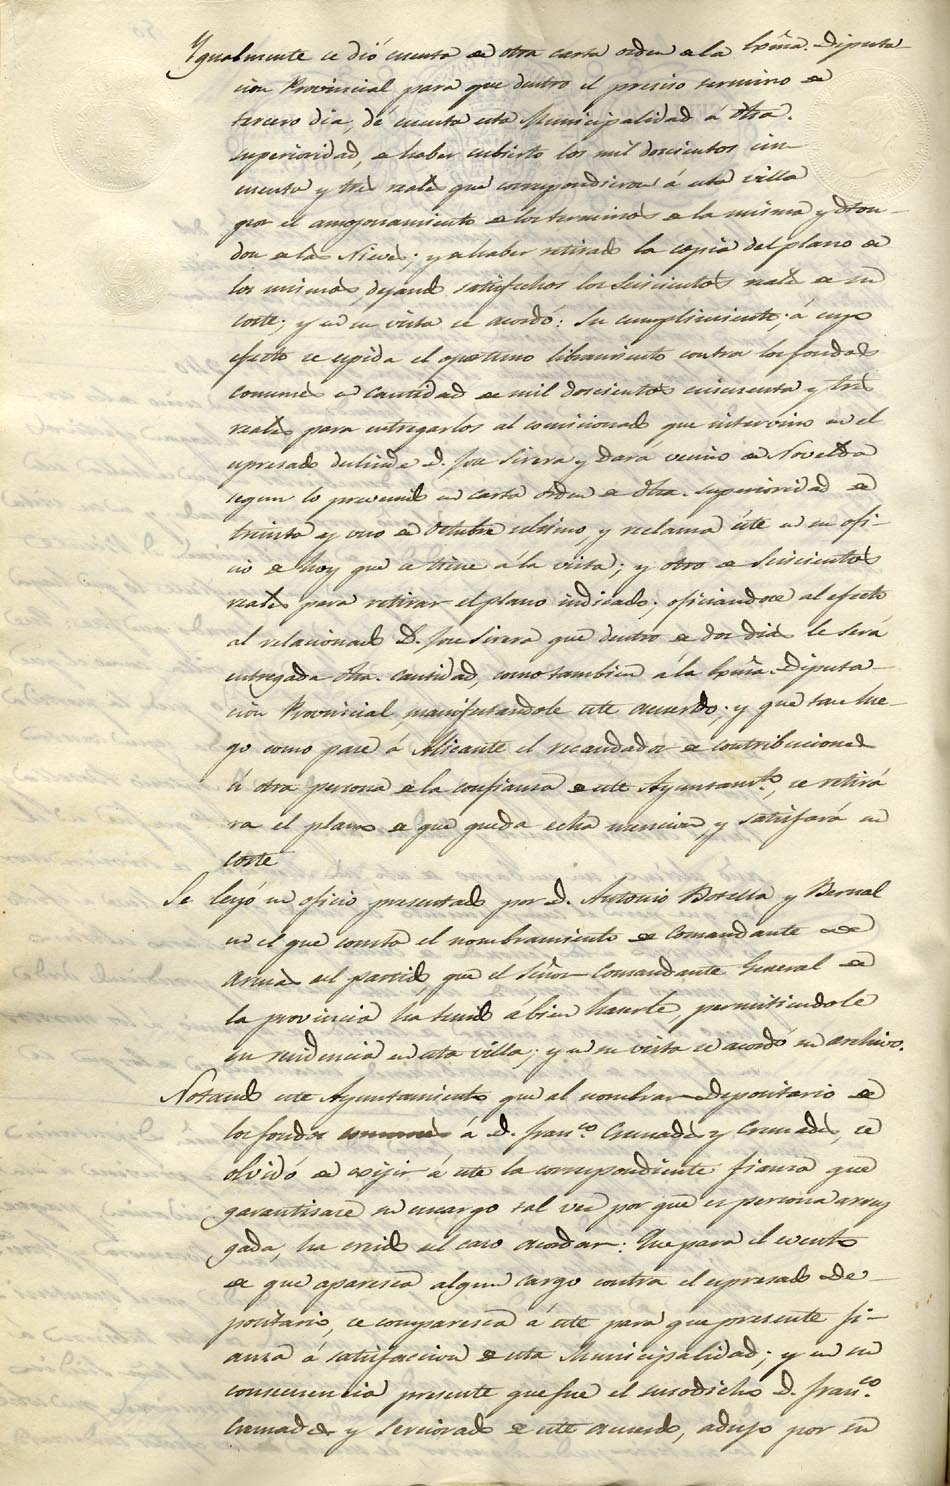 Ygualmente se dió cuenta de otra carta orden de la Exma. Diputa-
cion Provincial para que dentro el preciso termino de
tercero dia, dé cuenta esta Municipalidad á dha.
superioridad, de haber cubierto los mil doscientos cin-
cuenta y tres reales que correspondieron á esta villa
por el amojonamiento de los terminos de la misma y Hon-
don de las Nieves; y de haber retirado la copia del plano de
los mismos, dejando satisfechos los seiscientos reals. de su
coste; y en su vista se acordó: Su cumplimiento; á cuyo
efecto se espida el oportuno libramiento contra los fondos
comunes en cantidad de mil doscientos cincuenta y tres
reales para entregarlos al comisionado que intervino en el
espresado deslinde D. Jose Sirera y Dara vecino de Novelda
segun lo prevenido en carta orden de dha. superioridad de
treinta y uno de Octubre ultimo y reclama éste en su ofi-
cio de hoy que se tiene á la vista; y otro de seiscientos
reales para retirar el plano indicado; oficiandose al efecto
al relacionado D. Jose Sirera que dentro de dos dias le será
entregada dha. cantidad, como tambien á la Exma. Diputa-
cion Provincial manifestandole este acuerdo; y que tan lue-
go como pase á Alicante el recaudador de contribuciones
ú otra persona de la confianza de este Ayuntamto., se retira-
ra el plano de que queda echa mencion y satisfará su
coste
Se leyó un oficio presentado por D. Antonio Botella y Bernal
en el que consta el nombramiento de Comandante de
Armas del partido, que el Señor Comandante General de
la provincia ha tenido á bien hacerle permitiendole
su residencia en esta villa; y en su vista se acordó su archivo.
Notando este Ayuntamiento que al nombrar depositario de
los fondos comunes á D. Franco. Cremades y Cremades, se
olvidó de exijir á este la correspondiente fianza que
garantisase su encargo tal vez por que es persona array
gada, ha creido del caso acordar: Que para el evento
de que aparesca algun cargo contra el espresado de-
positario, se comparesca á este para que presente fi-
anza á satisfaccion de esta Municipalidad; y en su
consecuencia presente que fue el susodicho D. Franco.
Cremades y serciorado de este acuerdo, adujo por su